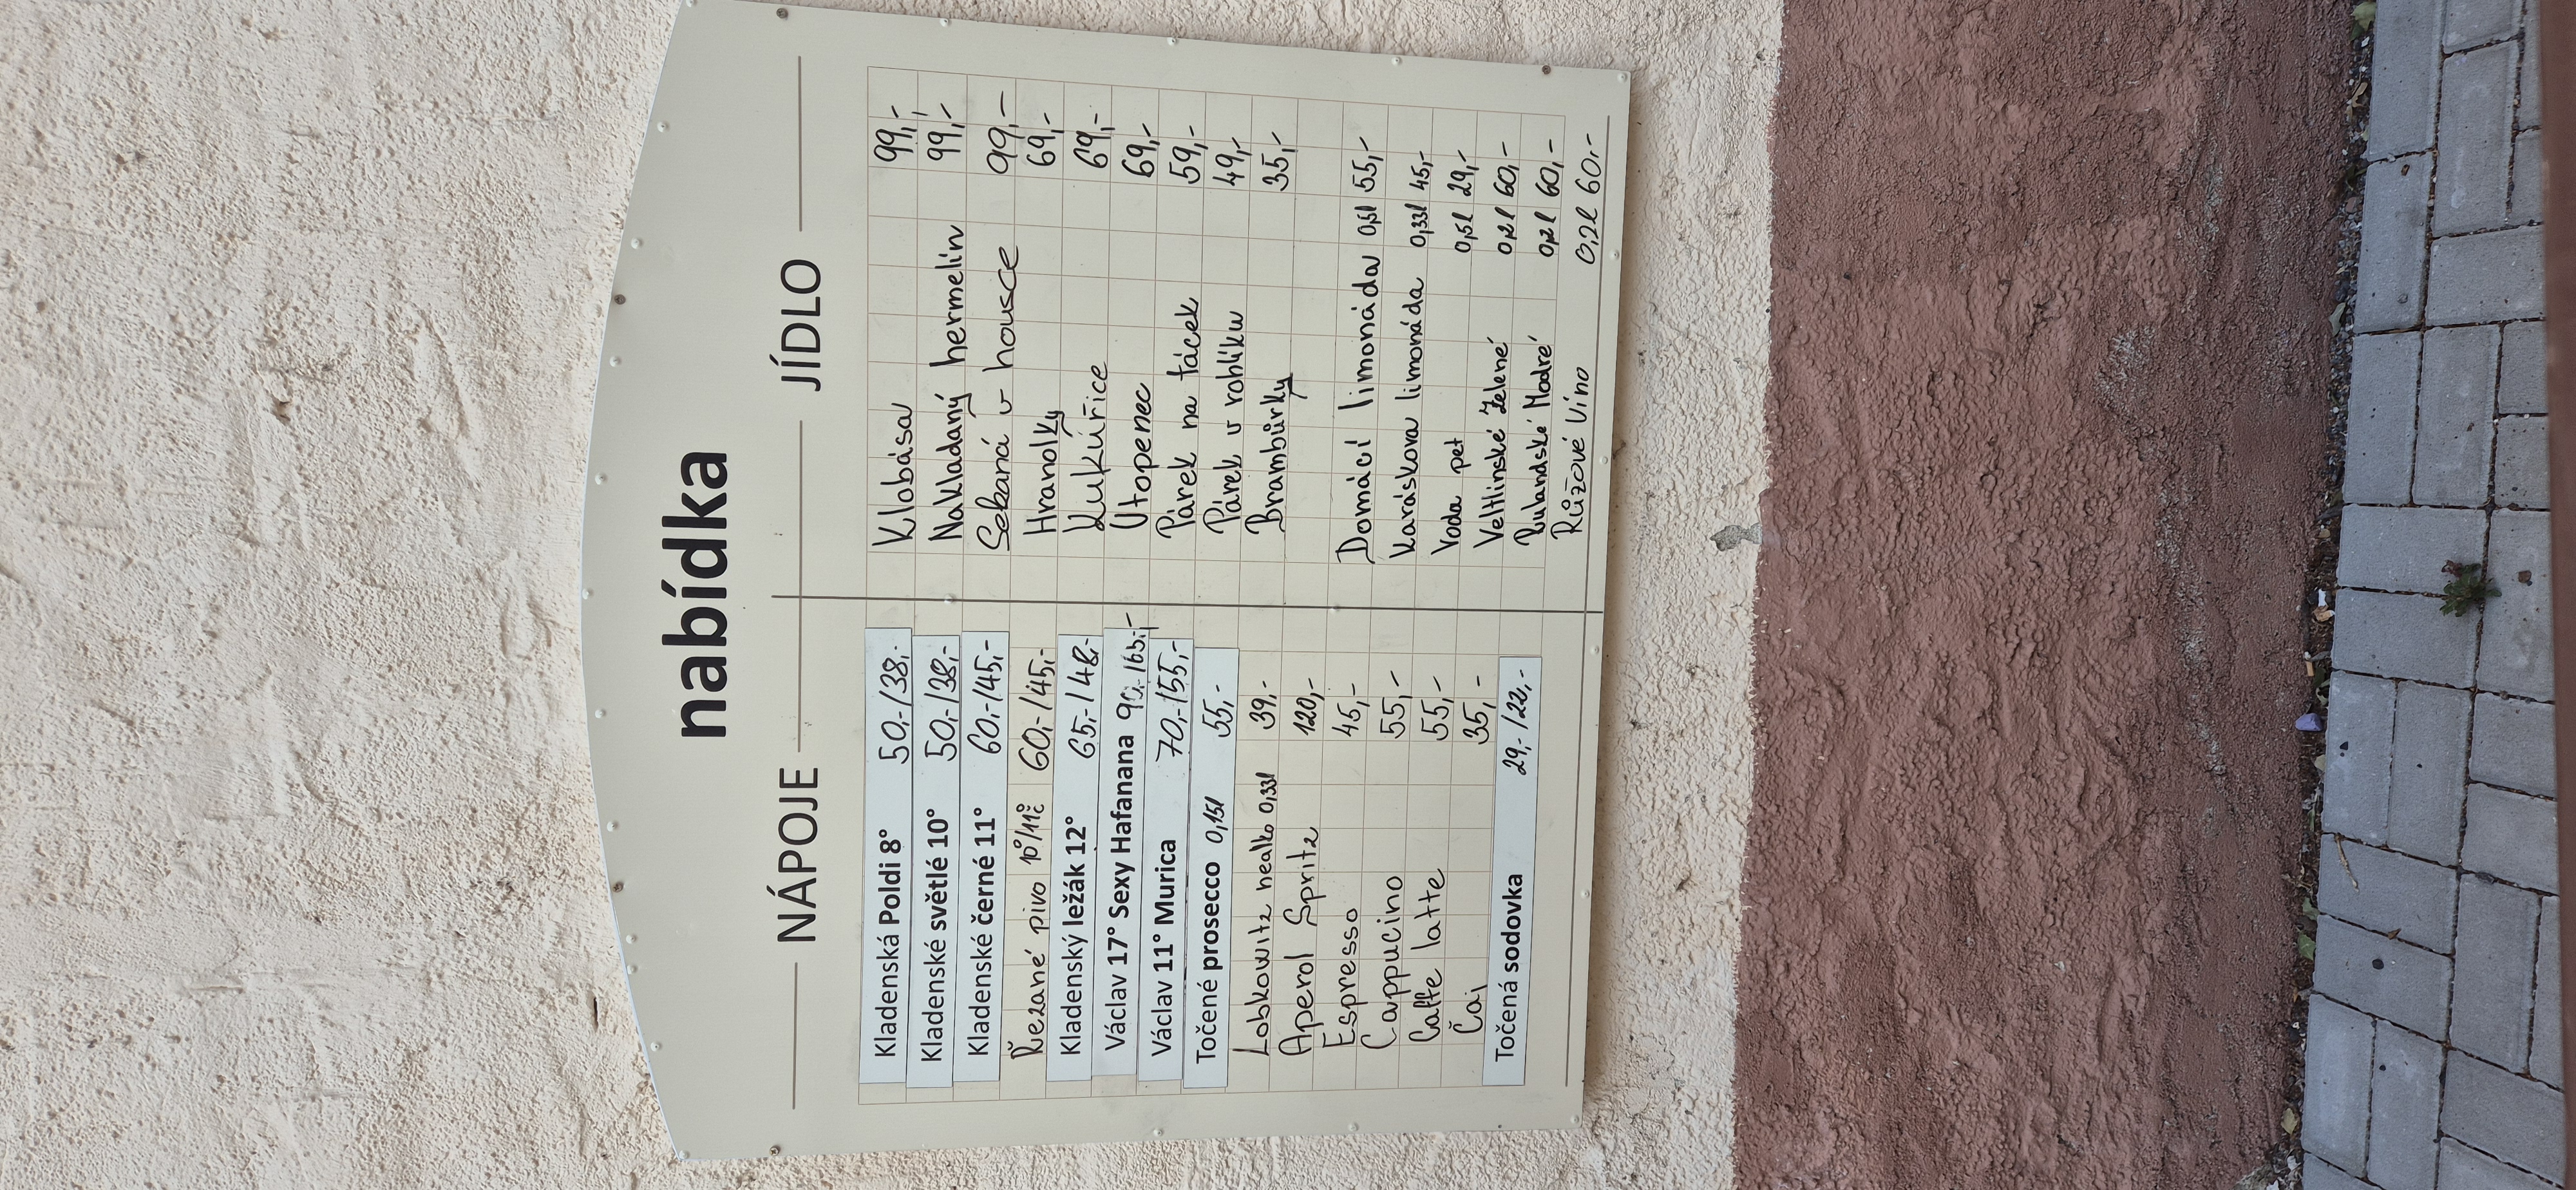 nabídka
NÁPOJE
Kladenská Poldi 8° 50,-/38,-
Kladenské světlé 10° 50,-/38,-
Kladenské černé 11° 60,-/45,-
Řezané pivo 10°/11č 60,-/45,-
Kladenský ležák 12° 65,-/48,-
Václav 17° Sexy Hafanana 90,-/65,-
Václav 11° Murica 70,-/55,-
Točené prosecco 0,15l 55,-
Lobkowitz nealko 0,33l 39,-
Aperol Spritz 120,-
Espresso 45,-
Cappucino 55,-
Caffe latte 55,-
Čaj 35,-
Točená sodovka 29,-/22,-
JÍDLO
Klobása 99,-
Nakladaný hermelín 99,-
Sekaná v housce 99,-
Hranolky 69,-
Kukúřice 69,-
Utopenec 69,-
Párek na tácek 59,-
Párek v rohlíku 49,-
Brambůrky 35,-
Domácí limonáda 0,5l 55,-
Karáskova limonáda 0,33l 45,-
Voda pet 0,5l 29,-
Veltlinské Zelené 0,2l 60,-
Rulandské Modré 0,2l 60,-
Růžové víno 0,2l 60,-